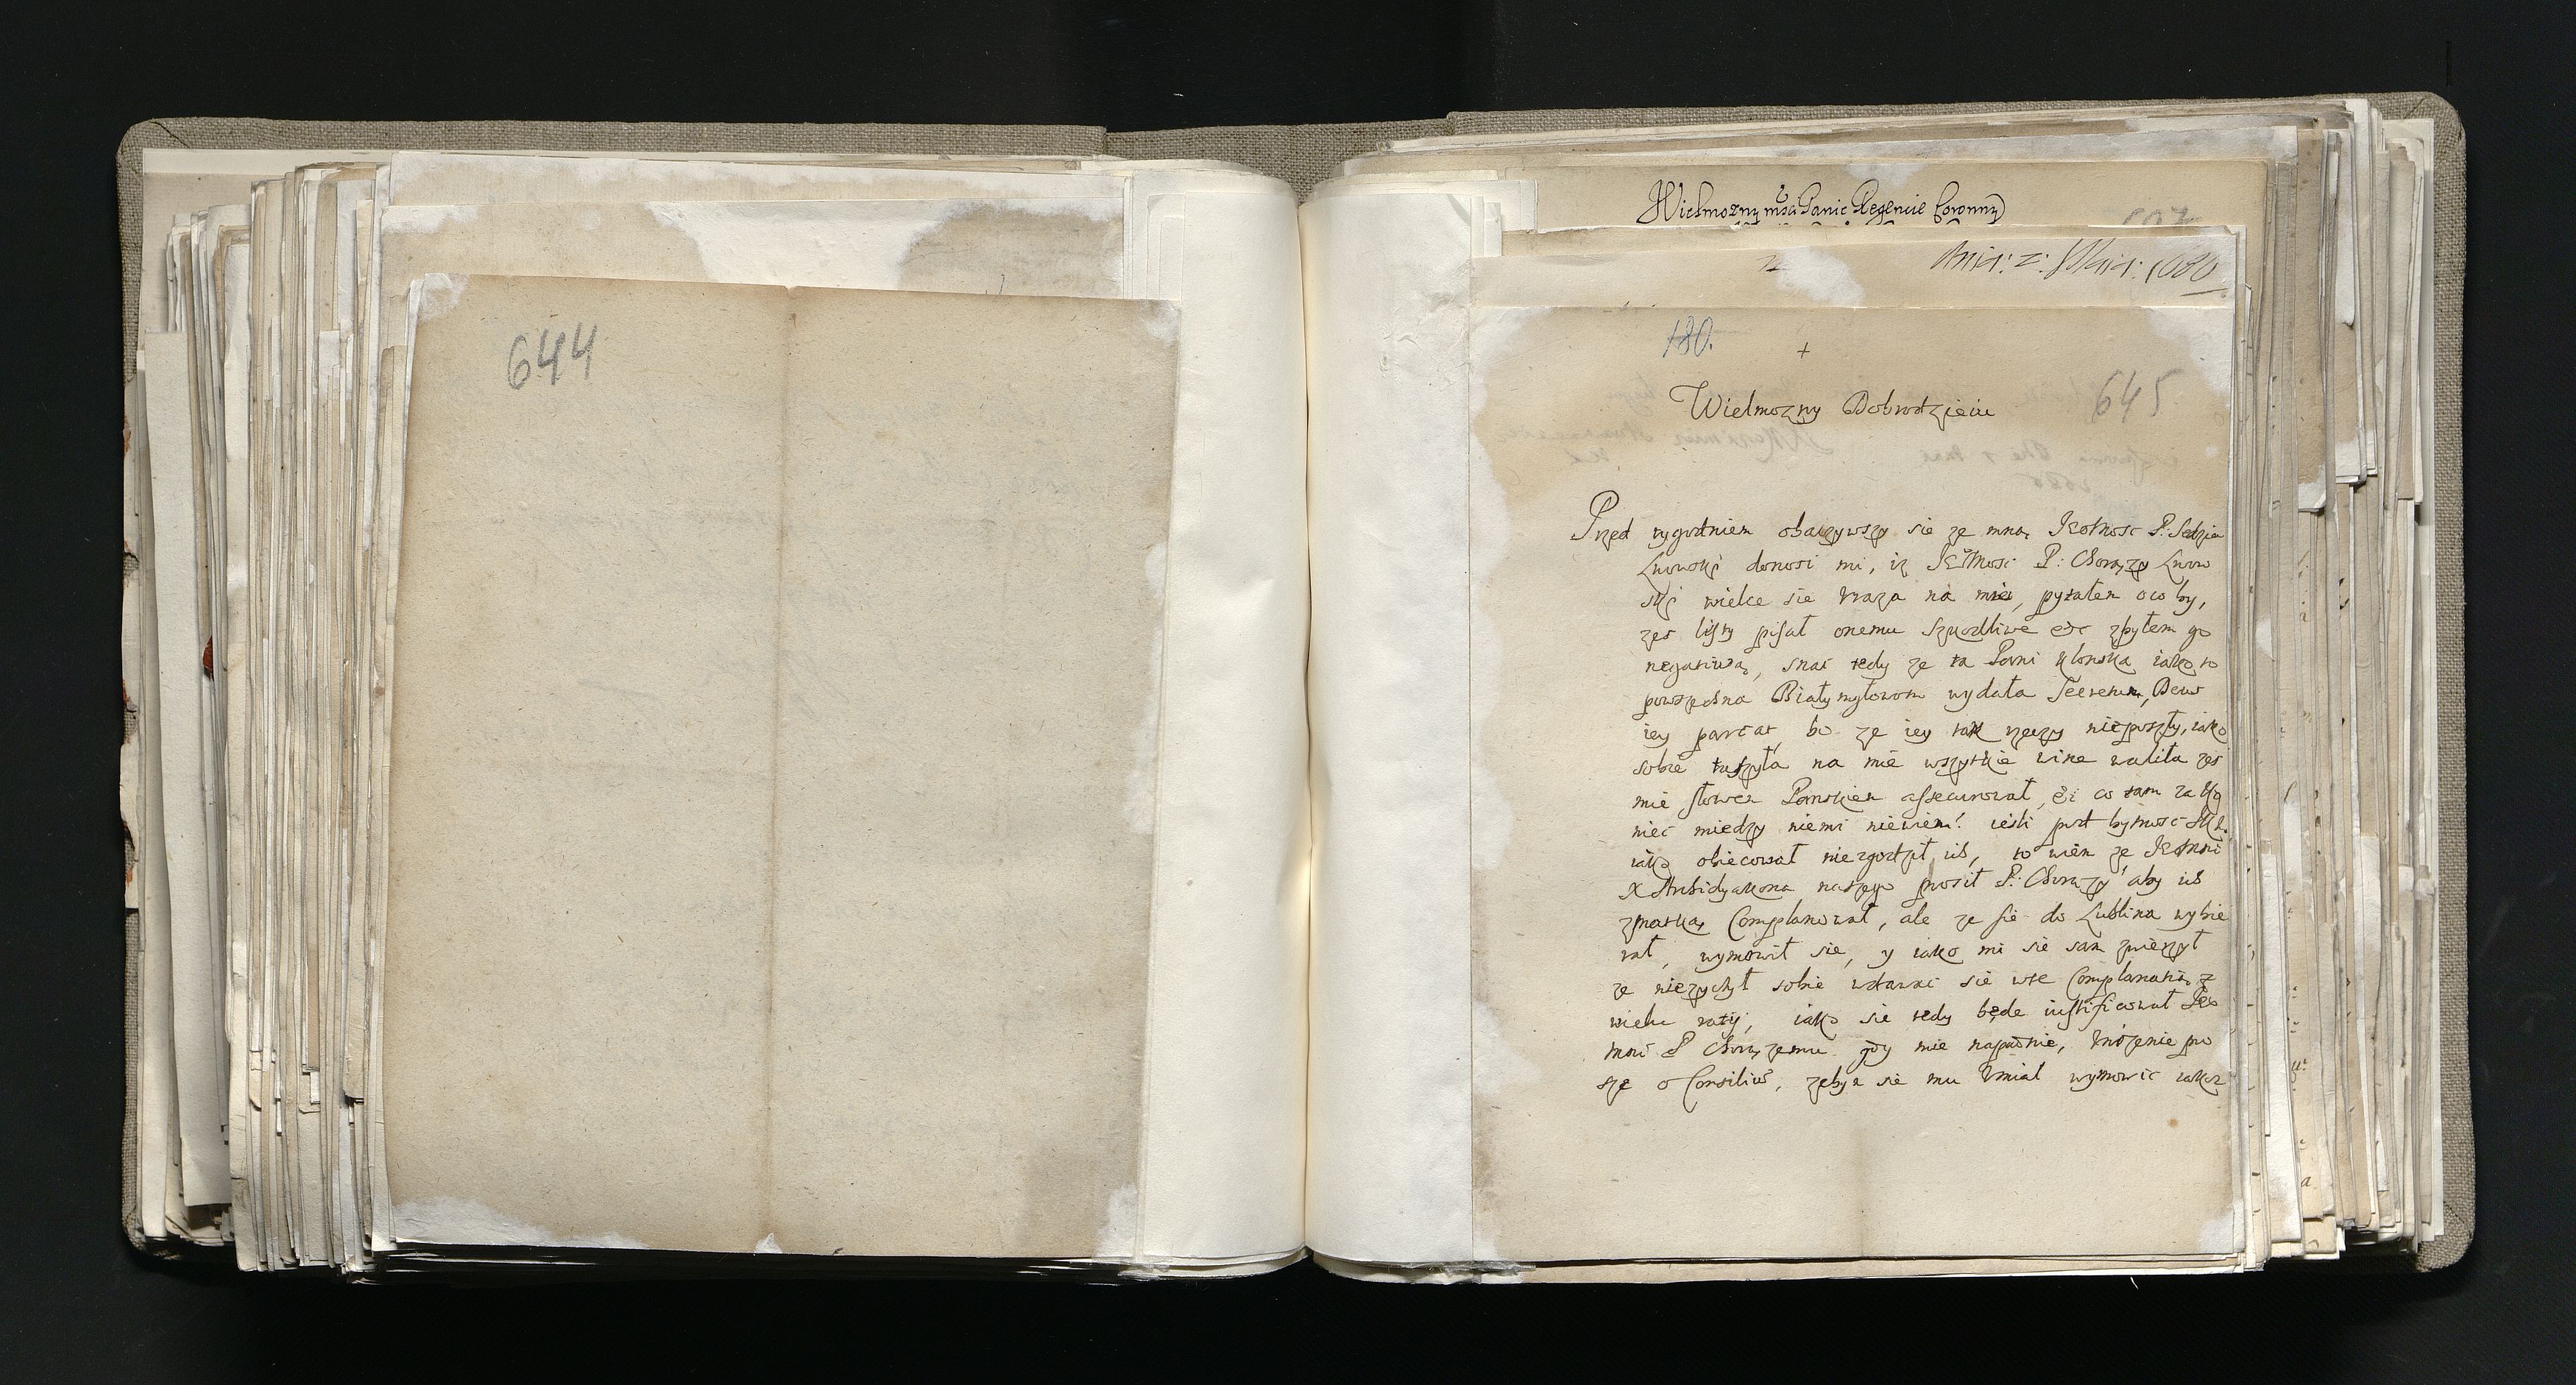 644
Wielmozny mśći Panie Regencie Coronny
Maia: 1686
180.
+
645
Wielmozny Dobrodzieiu
Przed tygodniem obaczywszy sie ze mną Jeomosc P: Sedzia
Lwowskj donosi mi, iz Jeomosc P: Chorązy Lwow
skj wielce sie vraza na mie, pytałem oco by,
zes listy pisał onemu szkodliwe etc zbyłem go
negatiwą, snac tedy ze ta Pani Jako to
powszechna Białymgłowom wydała Secretum, Deus
iey parcat, bo ze iey tak rzeczy nieposzły, iako
sobie tuszyła na mie wszytkie wine waliła zes
mie słowem Panskiem assecurował, &i co tam za
niec miedzy niemi niewiem! iesli pod bytnosc
iako obiecował niezgodził ich, to wiem ze Jeomosci
X Archidyakona naszego prosił P: Chorązy aby ich
zmatką Complanował, ale ze sie do Lublina wybie
rał, wymowił sie, y iako mi sie sam zwierzył
ze niezyczył sobie wdawac sie wte Complanatią z
wielu ratij, iako sie tedy będe iustificował Jeo
mosci P Chorązemu gdy mie napadnie, vnizenie pro
sze o Consilium, zebym sie mu vmiał wymowic